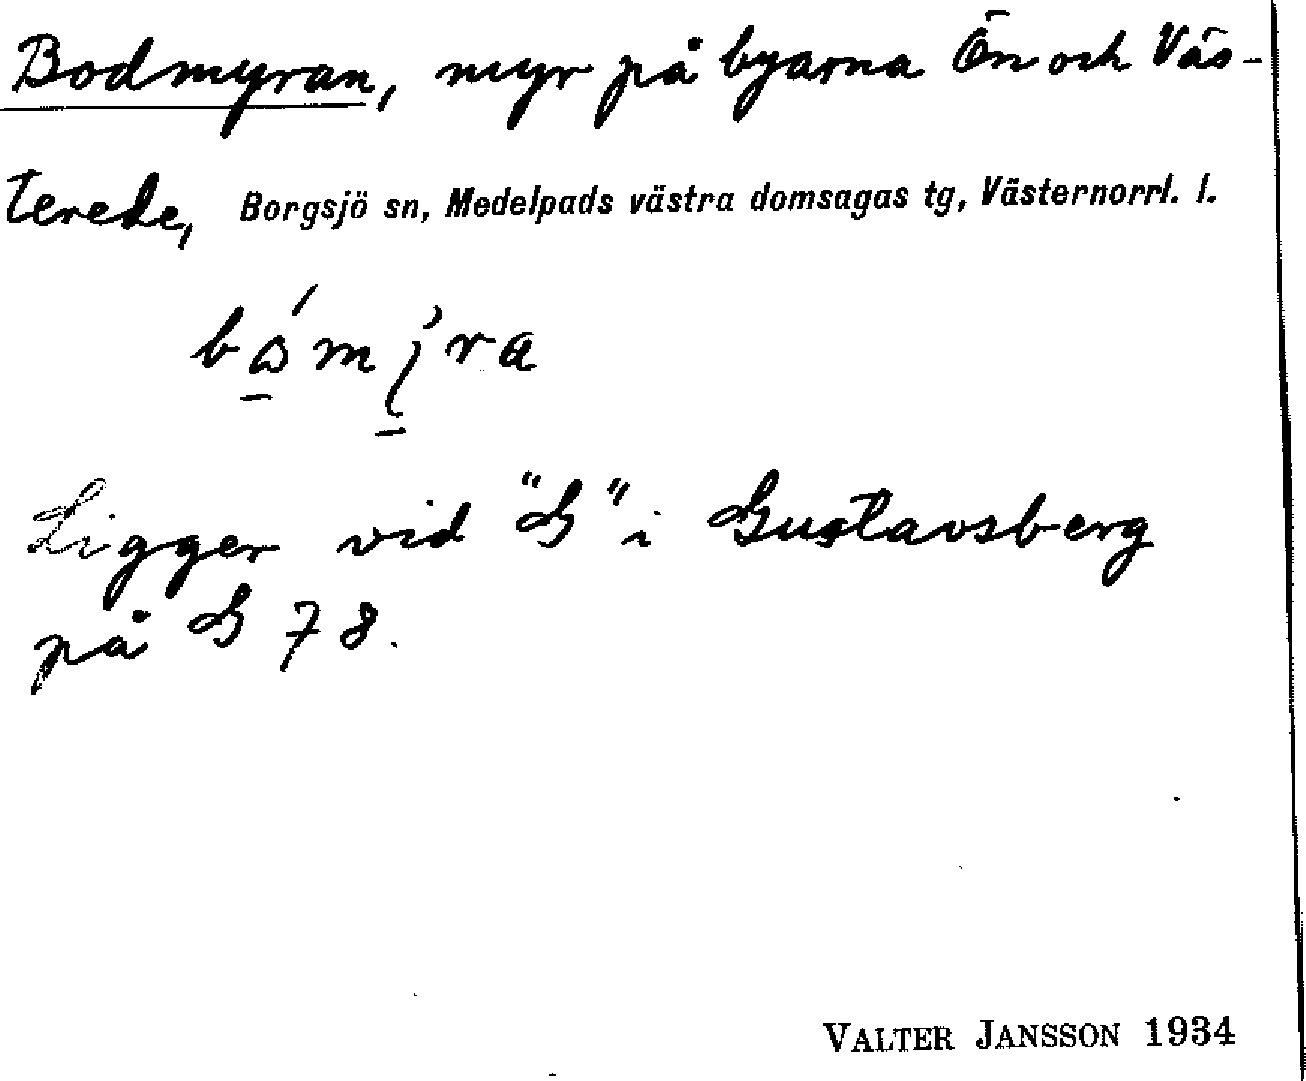 Bodmyran, myr på byarna Ön och Väs-
terede, Borgsjö sn, Medelpads västra domsagas tg, Västernorrl. l.
Ligger vid "G" i Gustavsberg
på G 78.
VALTER JANSSON 1934